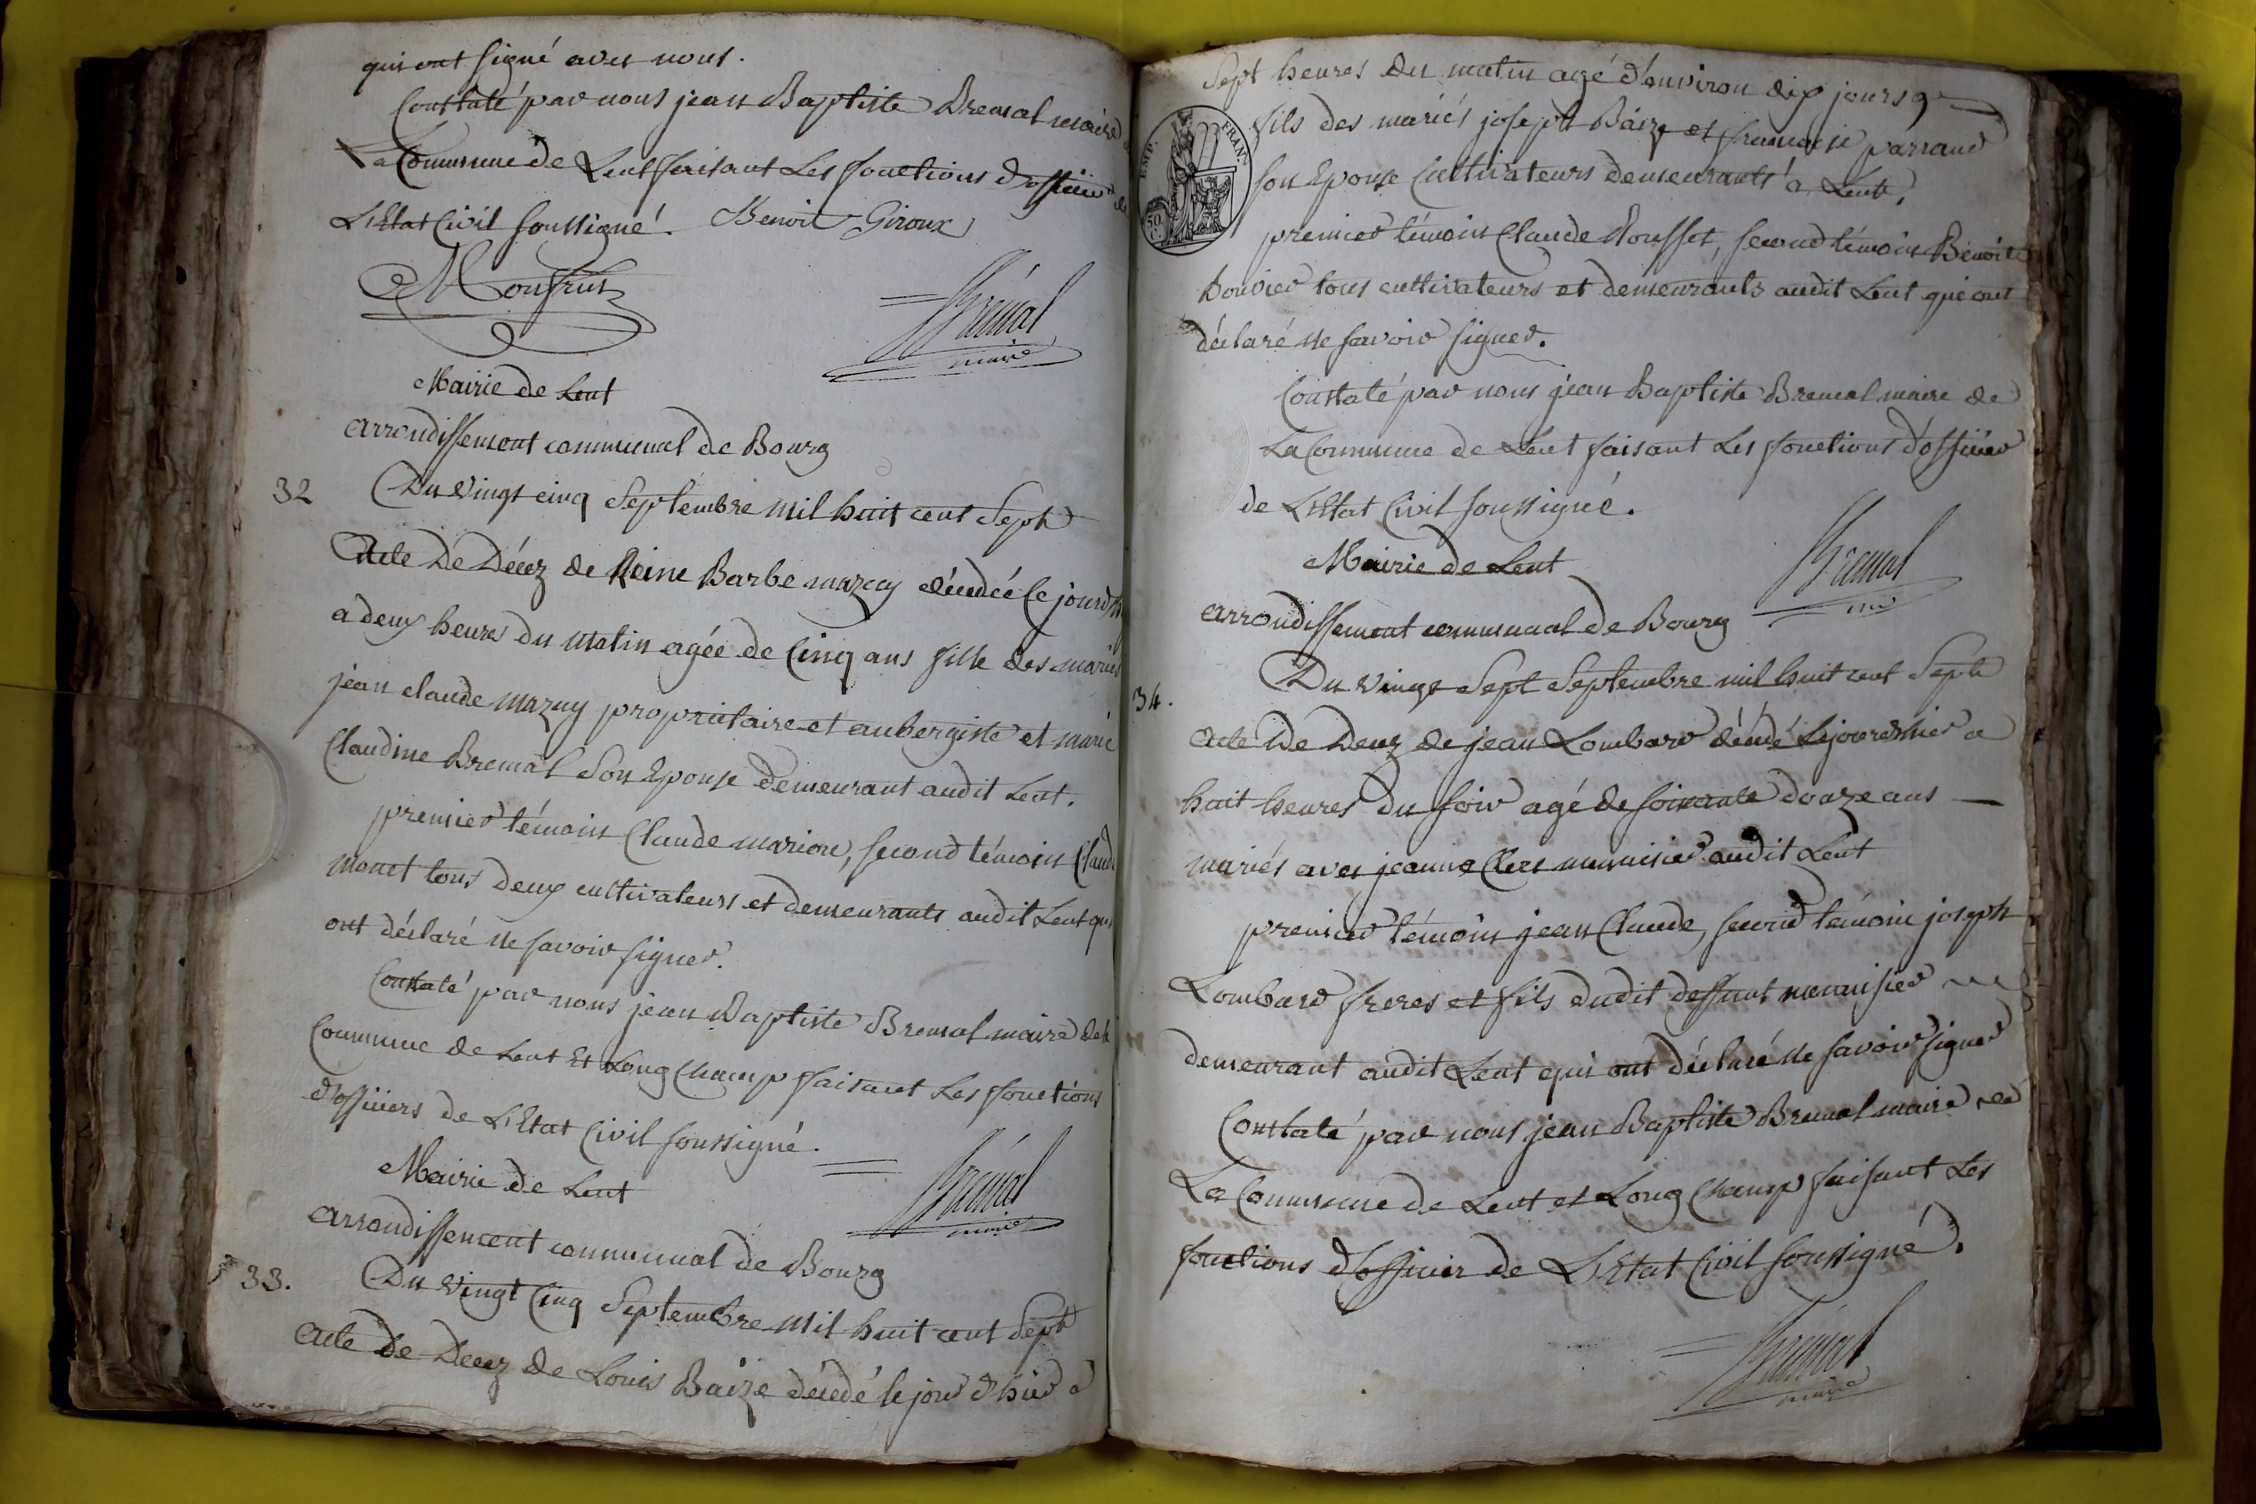 qui ont signé avec nous.
Constaté par nous jean Baptiste Bremal maire
La Commune de Lent faisant Les fonctions d'officier de
L'Etat Civil soussigné. Benoit Giroux
Monfrin
Bremal
maire
Mairie de Lent
arrondissement communal de Bourg
32 Du vingt cinq Septembre mil huit cent Sept
Acte De Décez de Reine Barbe mazuy décédée ce jourd'hui
a deux heures du matin agée de Cinq ans fille des mariés
jean claude mazuy propriétaire et aubergiste et marie
Claudine Bremal Son Epouse demeurant audit Lent.
premier témoin Claude marion, second témoin Claude
monet tous deux cultivateurs et demeurants audit Lent qui
ont déclaré ne savoir signer.
Constaté par nous jean Baptiste Bremal maire de la
Commune de Lent Et Long Champ faisant Les fonctions
d'officiers de L'Etat Civil soussigné.
Bremal
maire
Mairie de Lent
arrondissement communal de Bourg
33. Du vingt Cinq Septembre mil huit cent Sept
Acte de Decez de Louis Baize décédé le jour d'hier a
Sept heures du matin agé d'environ dix jours
EMP. FRAN.
50 C.
fils des mariés joseph Baize et francoise parrand
son Epouse Cultivateurs demeurants a Lent,
premier témoin Claude Rousset, second témoin Benoit
bouvier tous cultivateurs et demeurants audit Lent qui ont
déclaré ne savoir signer.
Constaté par nous jean Baptiste Bremal maire de
La Commune de Lent faisant Les fonctions d'officier
de L'Etat Civil soussigné.
Bremal
Mairie de Lent
arrondissement communal de Bourg
34. Du vingt Sept Septembre mil huit cent Sept
Acte De Decez de jean Lombard décédé le jour d'hier a
huit heures du soir agé de soixante douze ans
mariés avec jeanne Clerc menuisier audit Lent
premier témoin jean Claude, second témoin joseph
Lombard freres et fils dudit deffunt menuisier
demeurant audit Lent qui ont déclaré ne savoir signer
Constaté par nous jean Baptiste Bremal maire de
La Commune de Lent et Long Champ faisant Les
fonctions d'officier de L'Etat Civil soussigné.
Bremal
maire